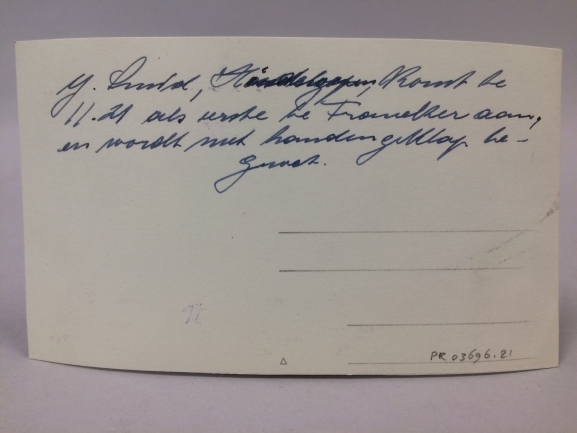 J. Smid, Hindelopen, Komt te
11.21 als eerste te Franeker aan,
en wordt met handengeklap be-
groet.
PR 03696.21